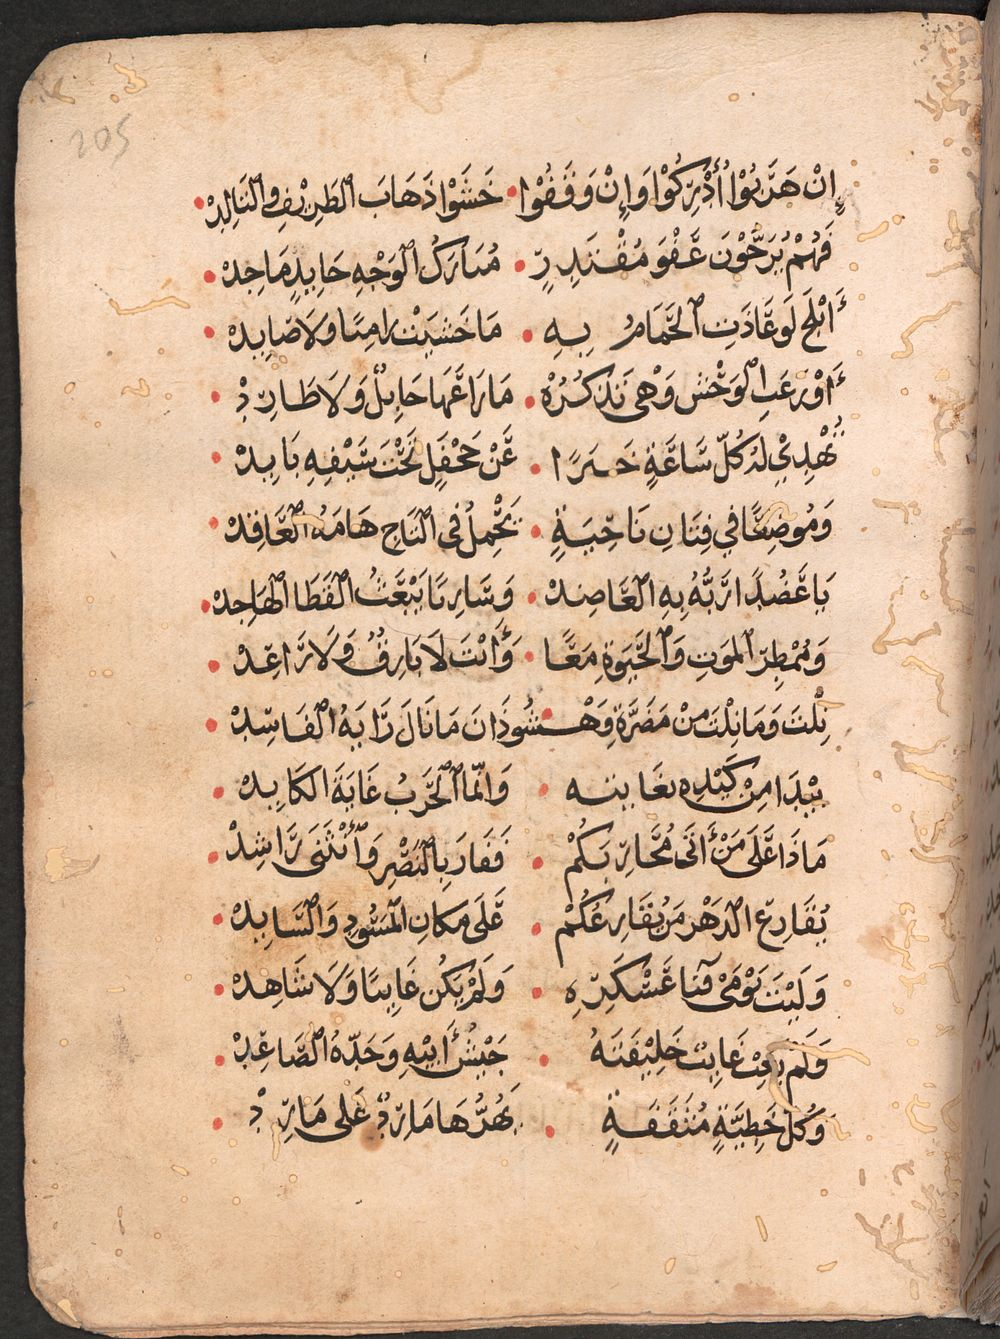 205
إِنْ هَرَبُوا أُدْرِكُوا وَإِنْ وَقَفُوا • خَشَوْا ذَهَابَ الطَرِيْفِ وَالتَالِدْ •
فَهُمْ يُرَجَّوْنَ عَفْوَ مُقْتَدِرٍ • مُبَارَكِ الوَجْهِ جَايِدٍ مَاجِدْ •
أَبْلَجَ لَو عَاذَتِ الحَمَامُ بِهِ • مَا خَشِيَتْ رَامِيًا وَلَا صَايِدْ •
أَوْ رَعَتِ الوَحْشُ وَهْيَ تَذْكُرُهْ • مَا رَاعَهَا حَابِلٌ وَلَا طَارِدْ •
تُهْدِيْ لَهُ كُلُّ سَاعَةٍ خَبَرًا • عَنْ جَحْفَلٍ تَحْتَ سَيْفِهِ بَايِدْ •
وَمُوضِعًا فِي فِتَانِ نَاجِيَةٍ • يَحْمِلُ فِي التَاجِ هَامَةَ العَاقِدْ •
يَا عَضُدًا رَبُّهُ بِهِ العَاضِدْ • وَسَارِيًا يَبْعَثُ القَطَا الهَاجِدْ •
وَمُمْطِرَ المَوتِ وَالحَيَوةِ مَعًا • وَأَنْتَ لَا بَارِقٌ وَلَا رَاعِدْ •
نِلْتَ وَمَا نِلْتَ مِنْ مَضَرَّةِ وَهْسُوذَانَ مَا نَالَ رَايُهُ الفَاسِدْ •
يَبْدَا مِنْ كَيْدِهِ بِغَايَتِهِ • وَانَّمَا الحَرْبُ غَايَةَ الكَايِدْ •
مَاذَا عَلَى مَنْ أَتَى مُحَارِبَكُمْ • فَفَارَ بِالنَصْرِ وَأَنْثَنَى رَاشِدْ •
يُقَارِعُ الدَهْرُ مَنْ يُقَارِعُكُمْ • عَلَى مَكَانِ المَسُودِ وَالسَايِدْ •
وَلَيْتَ يَوْمَيْ فَنَا عَسْكَرِهِ • وَلَمْ يَكُنْ غَايِبًا وَلَا شَاهِدْ •
وَلَمْ يَغِبْ غَايِبٌ خَلِيْفَتُهُ • جَيْشُ أَبِيْهِ وَجَدّهُ الصَاعِدْ •
وَكُلُّ خَطِيَّةٍ مُثَقَّفَةٍ • يَهُزُّهَا مَارِدٌ عَلَى مَارِدْ •